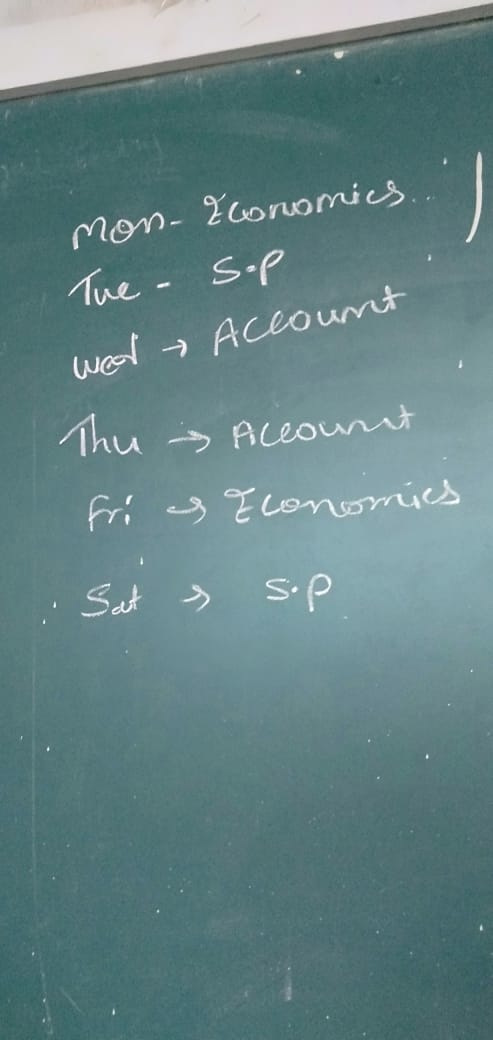 Mon - Economics
Tue - S.P
Wed → Account
Thu → Account
Fri → Economics
Sat → S.P